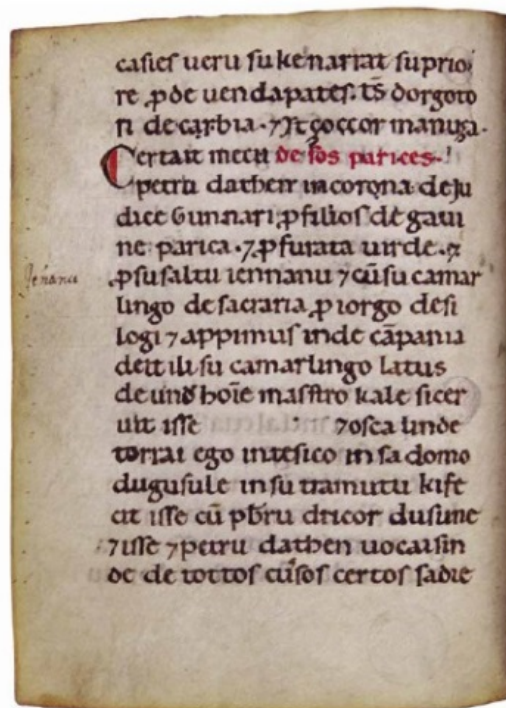 casies ueru su ke nartat su prio
re ꝑ de uenda pates. ts̃ dorgoto
ri de carbia. ⁊ Jst̃ goccor maniga.
Certait mecũ de sos parices.
petru dathen in corona de Ju
dice Gunnari. ꝑ filios de gaui
ne parica. ⁊ ꝑ furata uirde. ⁊
Jenanu
ꝑ su saltu iennanu ⁊ cũ su camar
lingo de sacraria ꝑ iorgo de si
logi ⁊ appimus inde cãpania
deit ili su camarlingo latus
de unũ hoĩe mastro kale si cer
uit isse ⁊ osca l inde
torrai ego intesico in sa domo
dugusule in su tramutu ki fe
cit isse cũ pb̃ru dticor dusune
⁊ isse ⁊ petru dathen uocaisin
de de tottos cũsos certos sa die